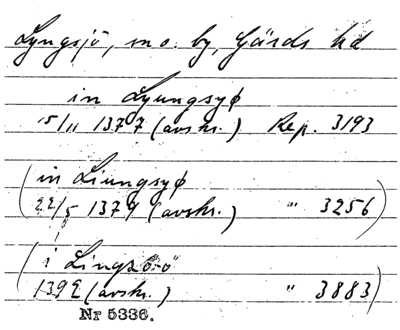 Lyngsjö, sn o. by, Gärds hd
in Lyungsyø
15/11 1377 (avskr.) Rep. 3193
(in Liungsyø
22/5 1379 (avskr.) " 3256)
(i Lings
1392 (avskr.) " 3883)
Nr 5336.